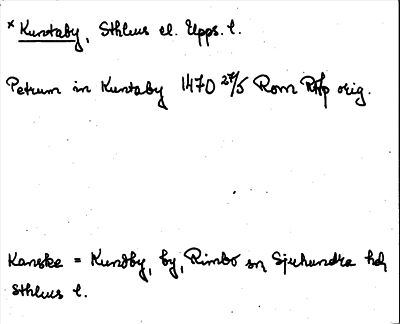 * Kuntaby, Sthlms el. Upps. l.
Petrum in Kuntaby 1470 27/5 Rom RAp orig.
Kanske = Kundby, by, Rimbo sn, Sjuhundra hd,
Sthlms l.